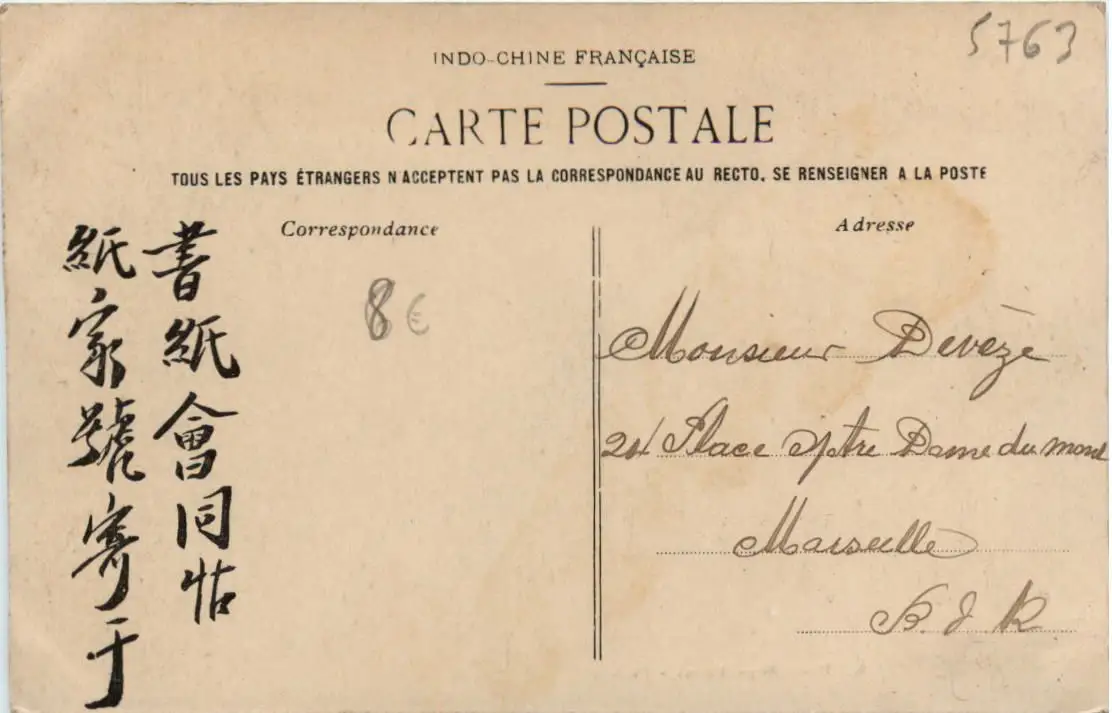 5763
INDO-CHINE FRANÇAISE
CARTE POSTALE
TOUS LES PAYS ÉTRANGERS N'ACCEPTENT PAS LA CORRESPONDANCE AU RECTO. SE RENSEIGNER A LA POSTE
Correspondance
書紙會同怗
紙家號寄于
8€
Adresse
Monsieur Devèze
24 Place Notre Dame du mont
Marseille
B. d. R.